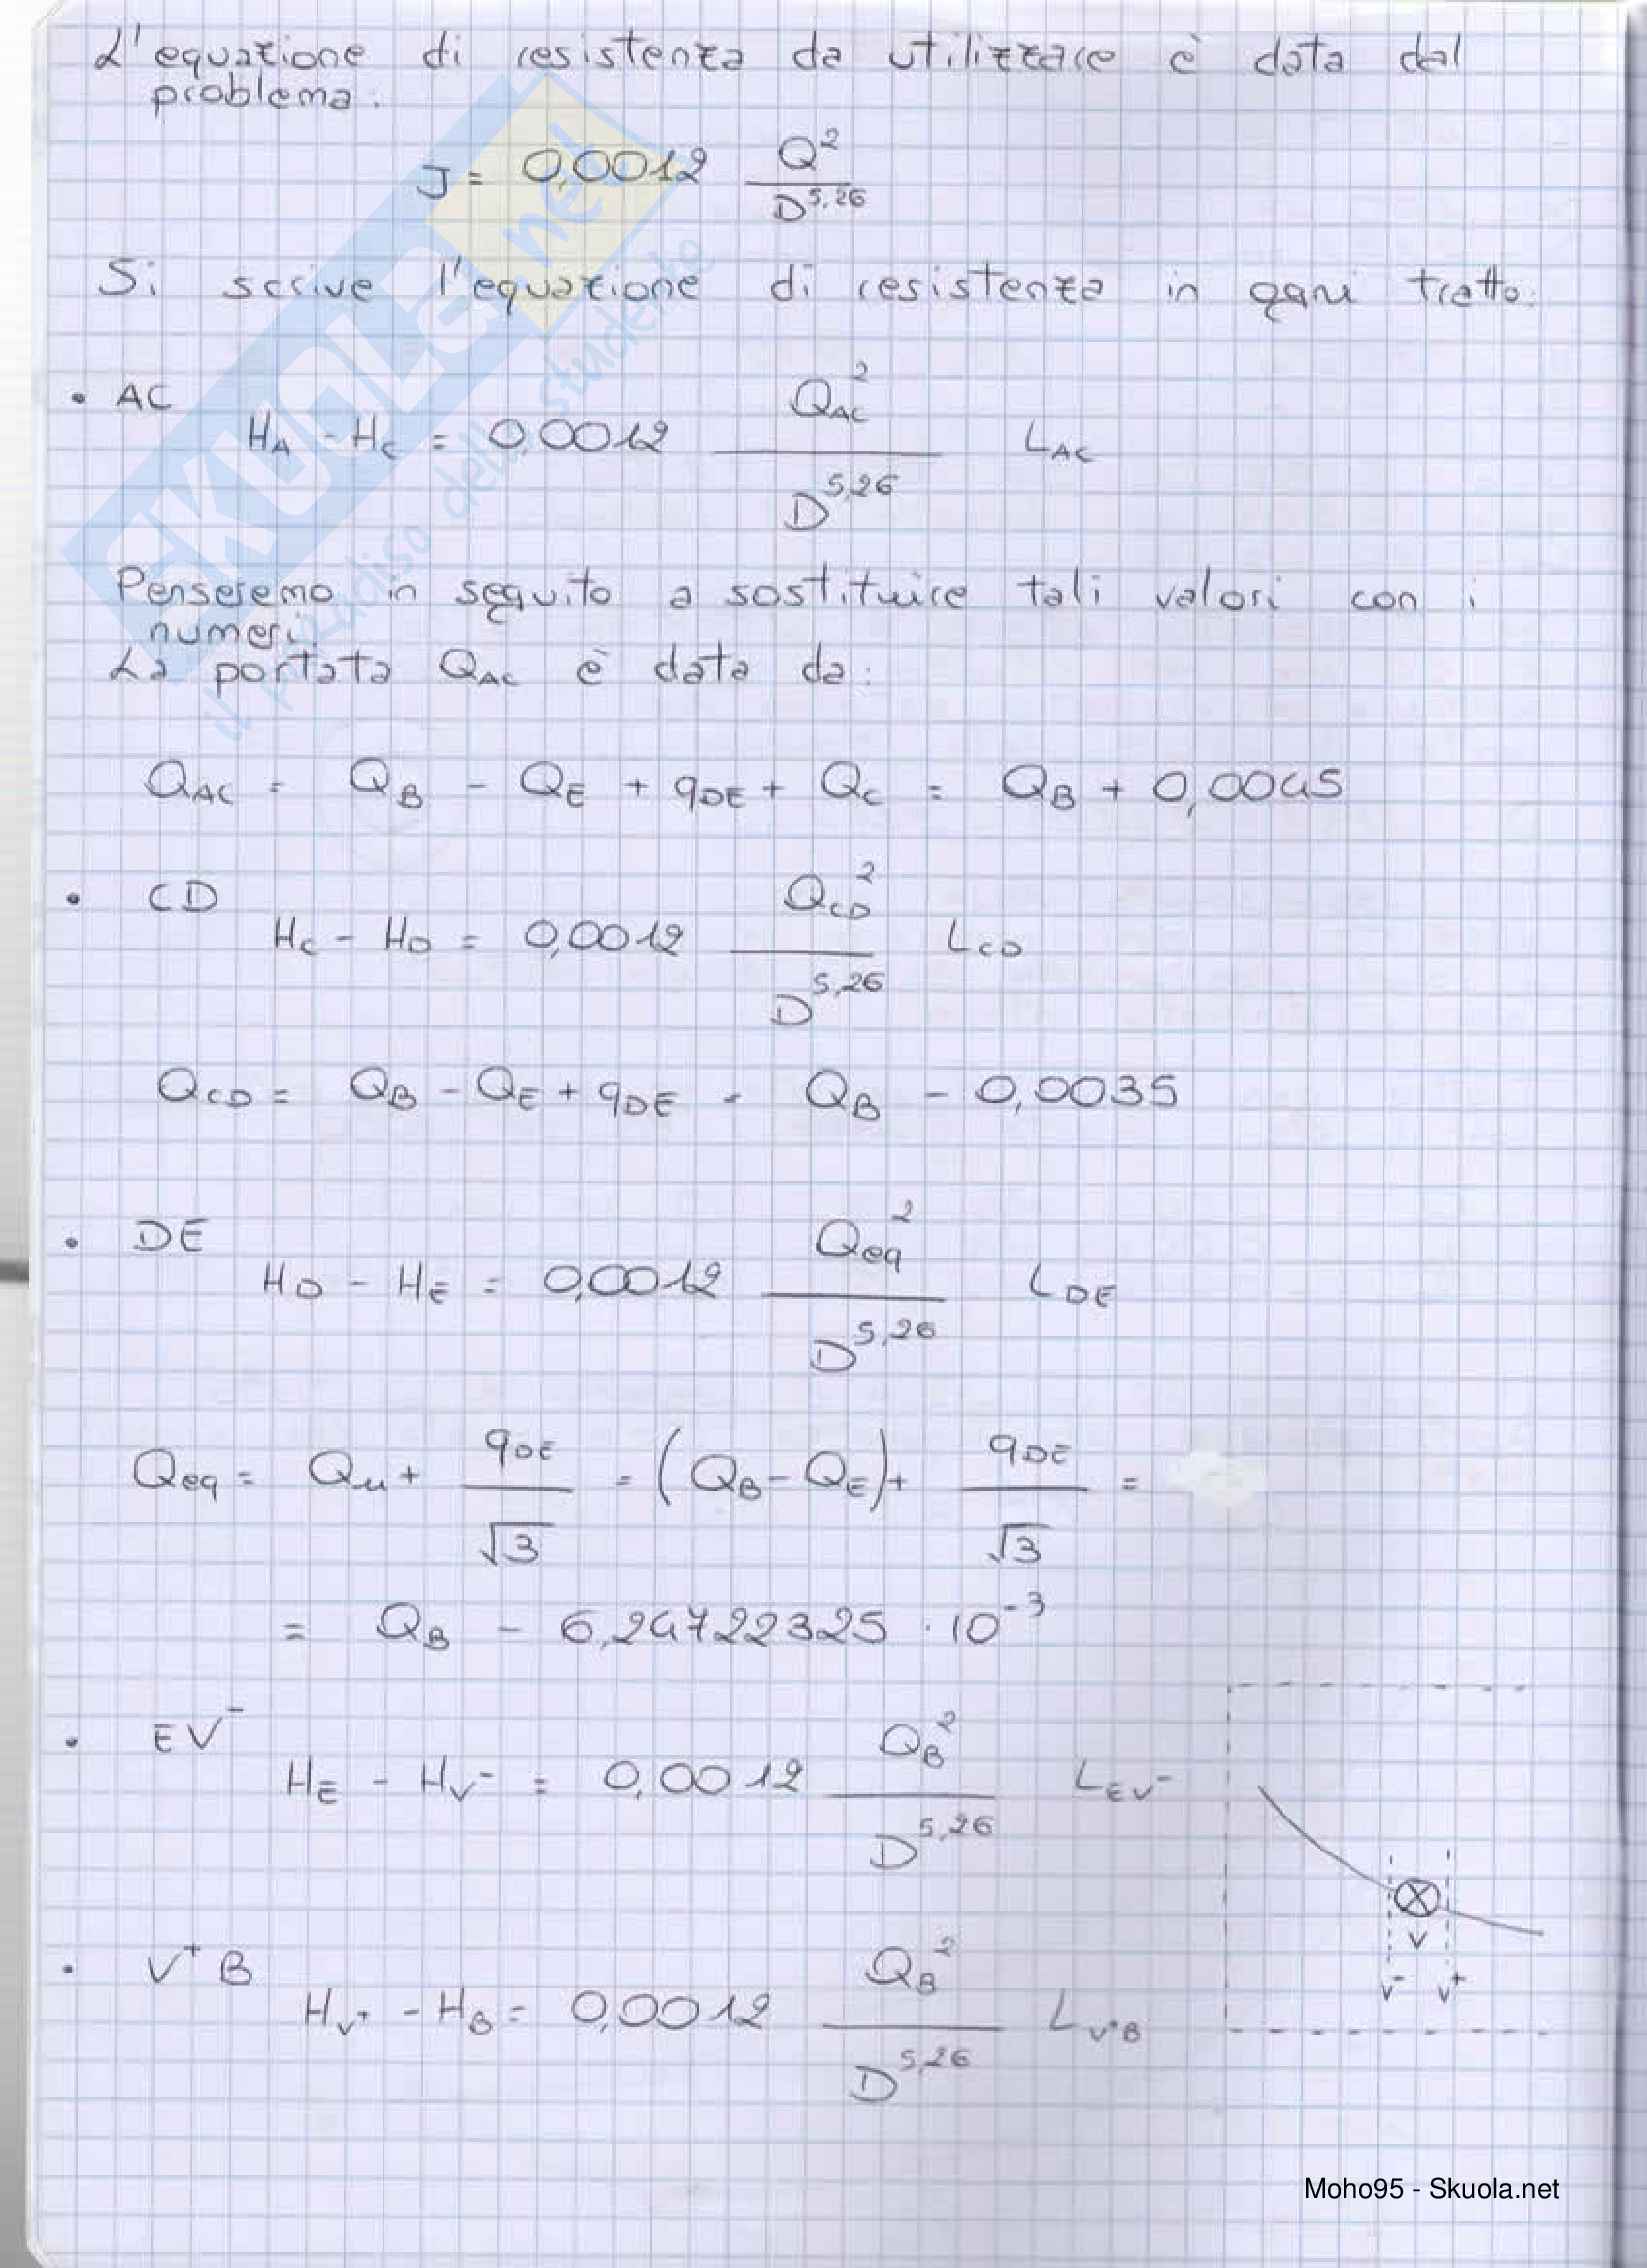 L'equazione di resistenza da utilizzare è data dal
problema.
J = 0,0012 Q² / D^5,26
Si scrive l'equazione di resistenza in ogni tratto.
• AC
H_A - H_C = 0,0012 Q_AC² / D^5,26 L_AC
Penseremo in seguito a sostituire tali valori con i
numeri.
La portata Q_AC è data da:
Q_AC = Q_B - Q_E + q_DE + Q_C = Q_B + 0,0045
• CD
H_C - H_D = 0,0012 Q_CD² / D^5,26 L_CD
Q_CD = Q_B - Q_E + q_DE = Q_B - 0,0035
• DE
H_D - H_E = 0,0012 Q_eq² / D^5,26 L_DE
Q_eq = Q_u + q_DE / √3 = (Q_B - Q_E) + q_DE / √3 =
= Q_B - 6,24722325 · 10^-3
• EV^-
H_E - H_V^- = 0,0012 Q_B² / D^5,26 L_EV^-
V
V^- V^+
• V^+ B
H_V^+ - H_B = 0,0012 Q_B² / D^5,26 L_V^+B
SKUOLA.net
il paradiso dello studente
Moho95 - Skuola.net